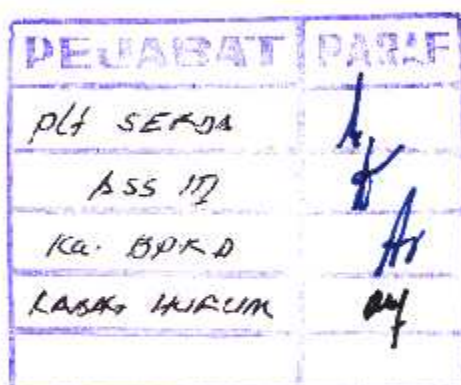 PEJABAT PARAF
Plt SEKDA
ASS III
Ka. BPKD
KABAG HUKUM